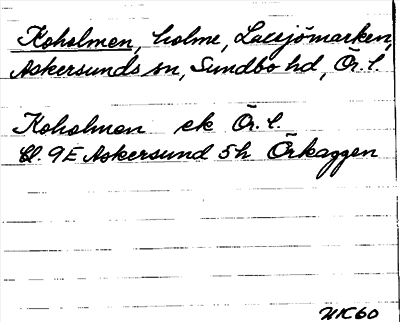 Koholmen, holme, Lassjömarken,
Askersunds sn, Sundbo hd, Ör. l.
Koholmen ek Ör. l.
Bl. 9E Askersund 5h Örkaggen
HK60